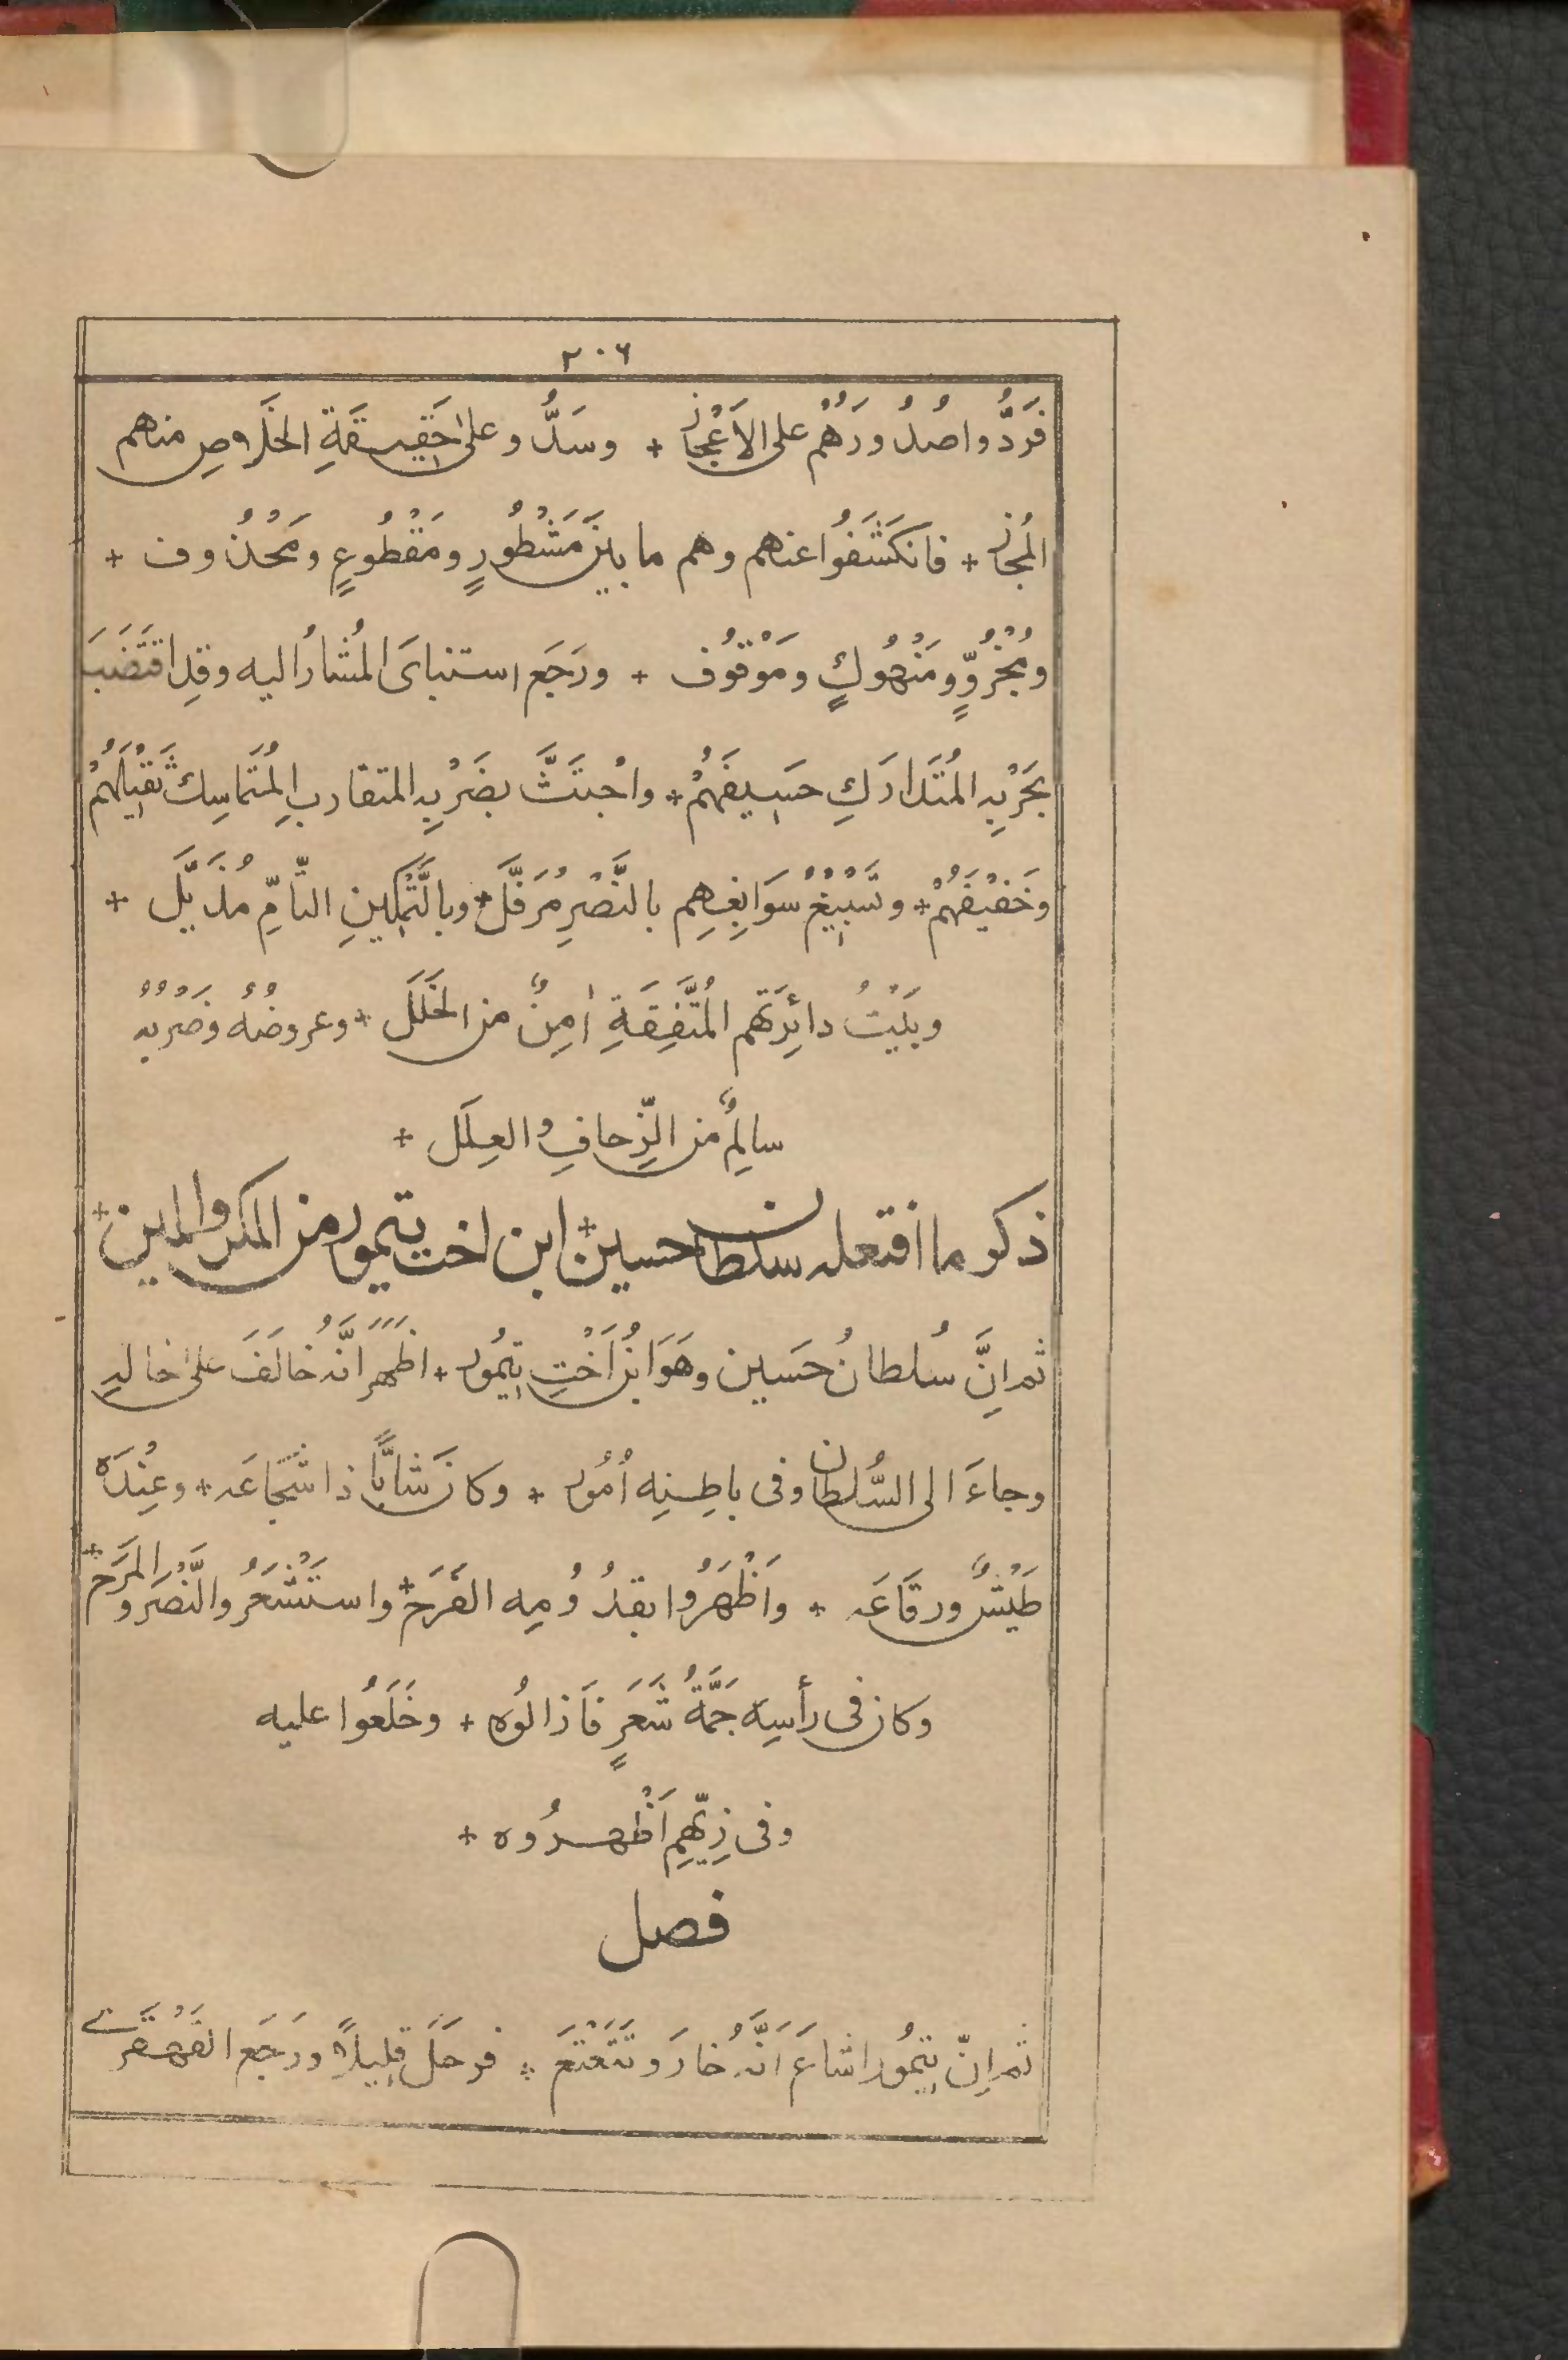 ٢٠٦
فَرَدُّوا صُدُورَهُمْ على الاَعْجازِ + وسَدُّوا على حَقِيقَةِ الخَلَاصِ منهم
المُجازِ + فانكَشَفُوا عنهم وهم ما بينَ مَشْطُورٍ ومَقْطُوعٍ ومَحْذُوف +
ومُجْزُوٍّ ومَنْهُوكٍ ومَوْقُوف + ورَجَع استنباىَ المُشارُ اليه وقدِ اقتَضَبَ
بحَرْبِهِ المُتَدارَكِ حسيفَهُمْ + واجْتَثَّ بضَرْبِهِ المتقاربِ المُتَماسِك ثَقِيْلَهُمْ
وخَفيْفَهُمْ + وتَسْبِيْغُ سَوَابِغِهِم بالنَّصْرِ مُرَفَّل + وبالتَّمْكينِ التامِّ مُذَيَّل +
وبَيْتُ دائِرَتِهم المُتَّفِقَةِ اٰمِنٌ من الخَلَل + وعروضُهُ وضَرْبُهُ
سالِمٌ من الزِّحافِ والعِلَل +
ذكر ما افتعله سلطان حسين + ابن اخت تيمور من المكر والمين +
ثم اِنَّ سُلطانُ حَسَين وهَوَ ابنُ اُخْتِ تِيْمُور + اظهَرَ اَنَّهُ خالَفَ على خاله
وجاءَ الى السُّلطان وفى باطِنِه اُمُور + وكانَ شابًّا ذا شَجَاعَه + وعِنْدَه
طَيْشٌ ورقَاعَه + واَظْهَرُوا بقدُومِه الفَرَح + واستَشْعَرُوا النَّصْرَ والمَرَح +
وكان فى رأسِه جُمَّةُ شَعَرٍ فاَزالُوه + وخَلَعُوا عليه
وفى زِيّهِم اَظْهرُوه +
فصل
ثم اِنّ تِيمُور اشاعَ اَنَّهُ خارَ وتَتَعْتَعَ + فرحَلَ قلِيلًا ورَجَع القَهْقَرى